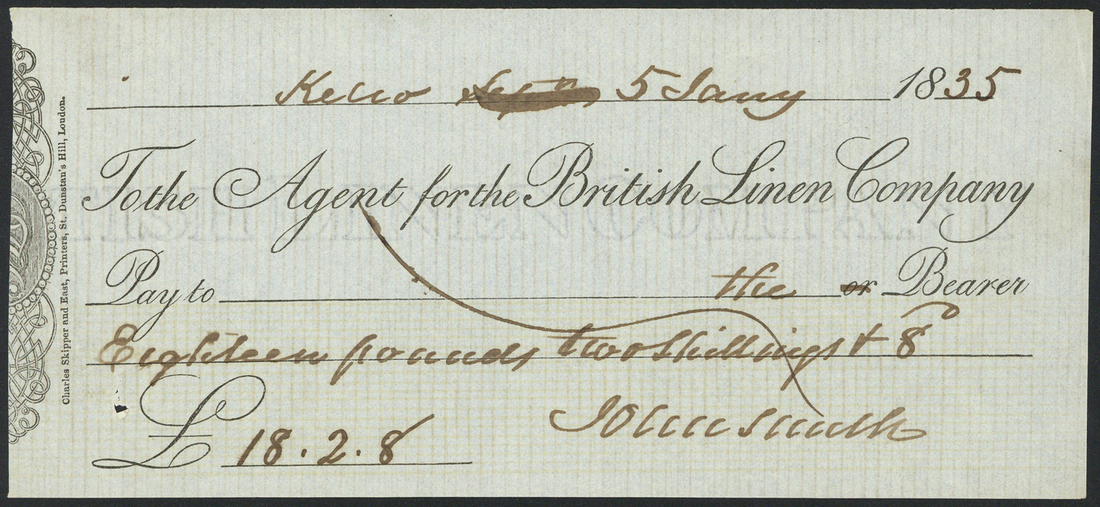 Kelso 5 Jany 1835
To the Agent for the British Linen Company
Pay to the or Bearer
Eighteen pounds two shillings & 8d
£ 18.2.8
John Smith
Charles Skipper and East, Printers, St. Dunstan's Hill, London.